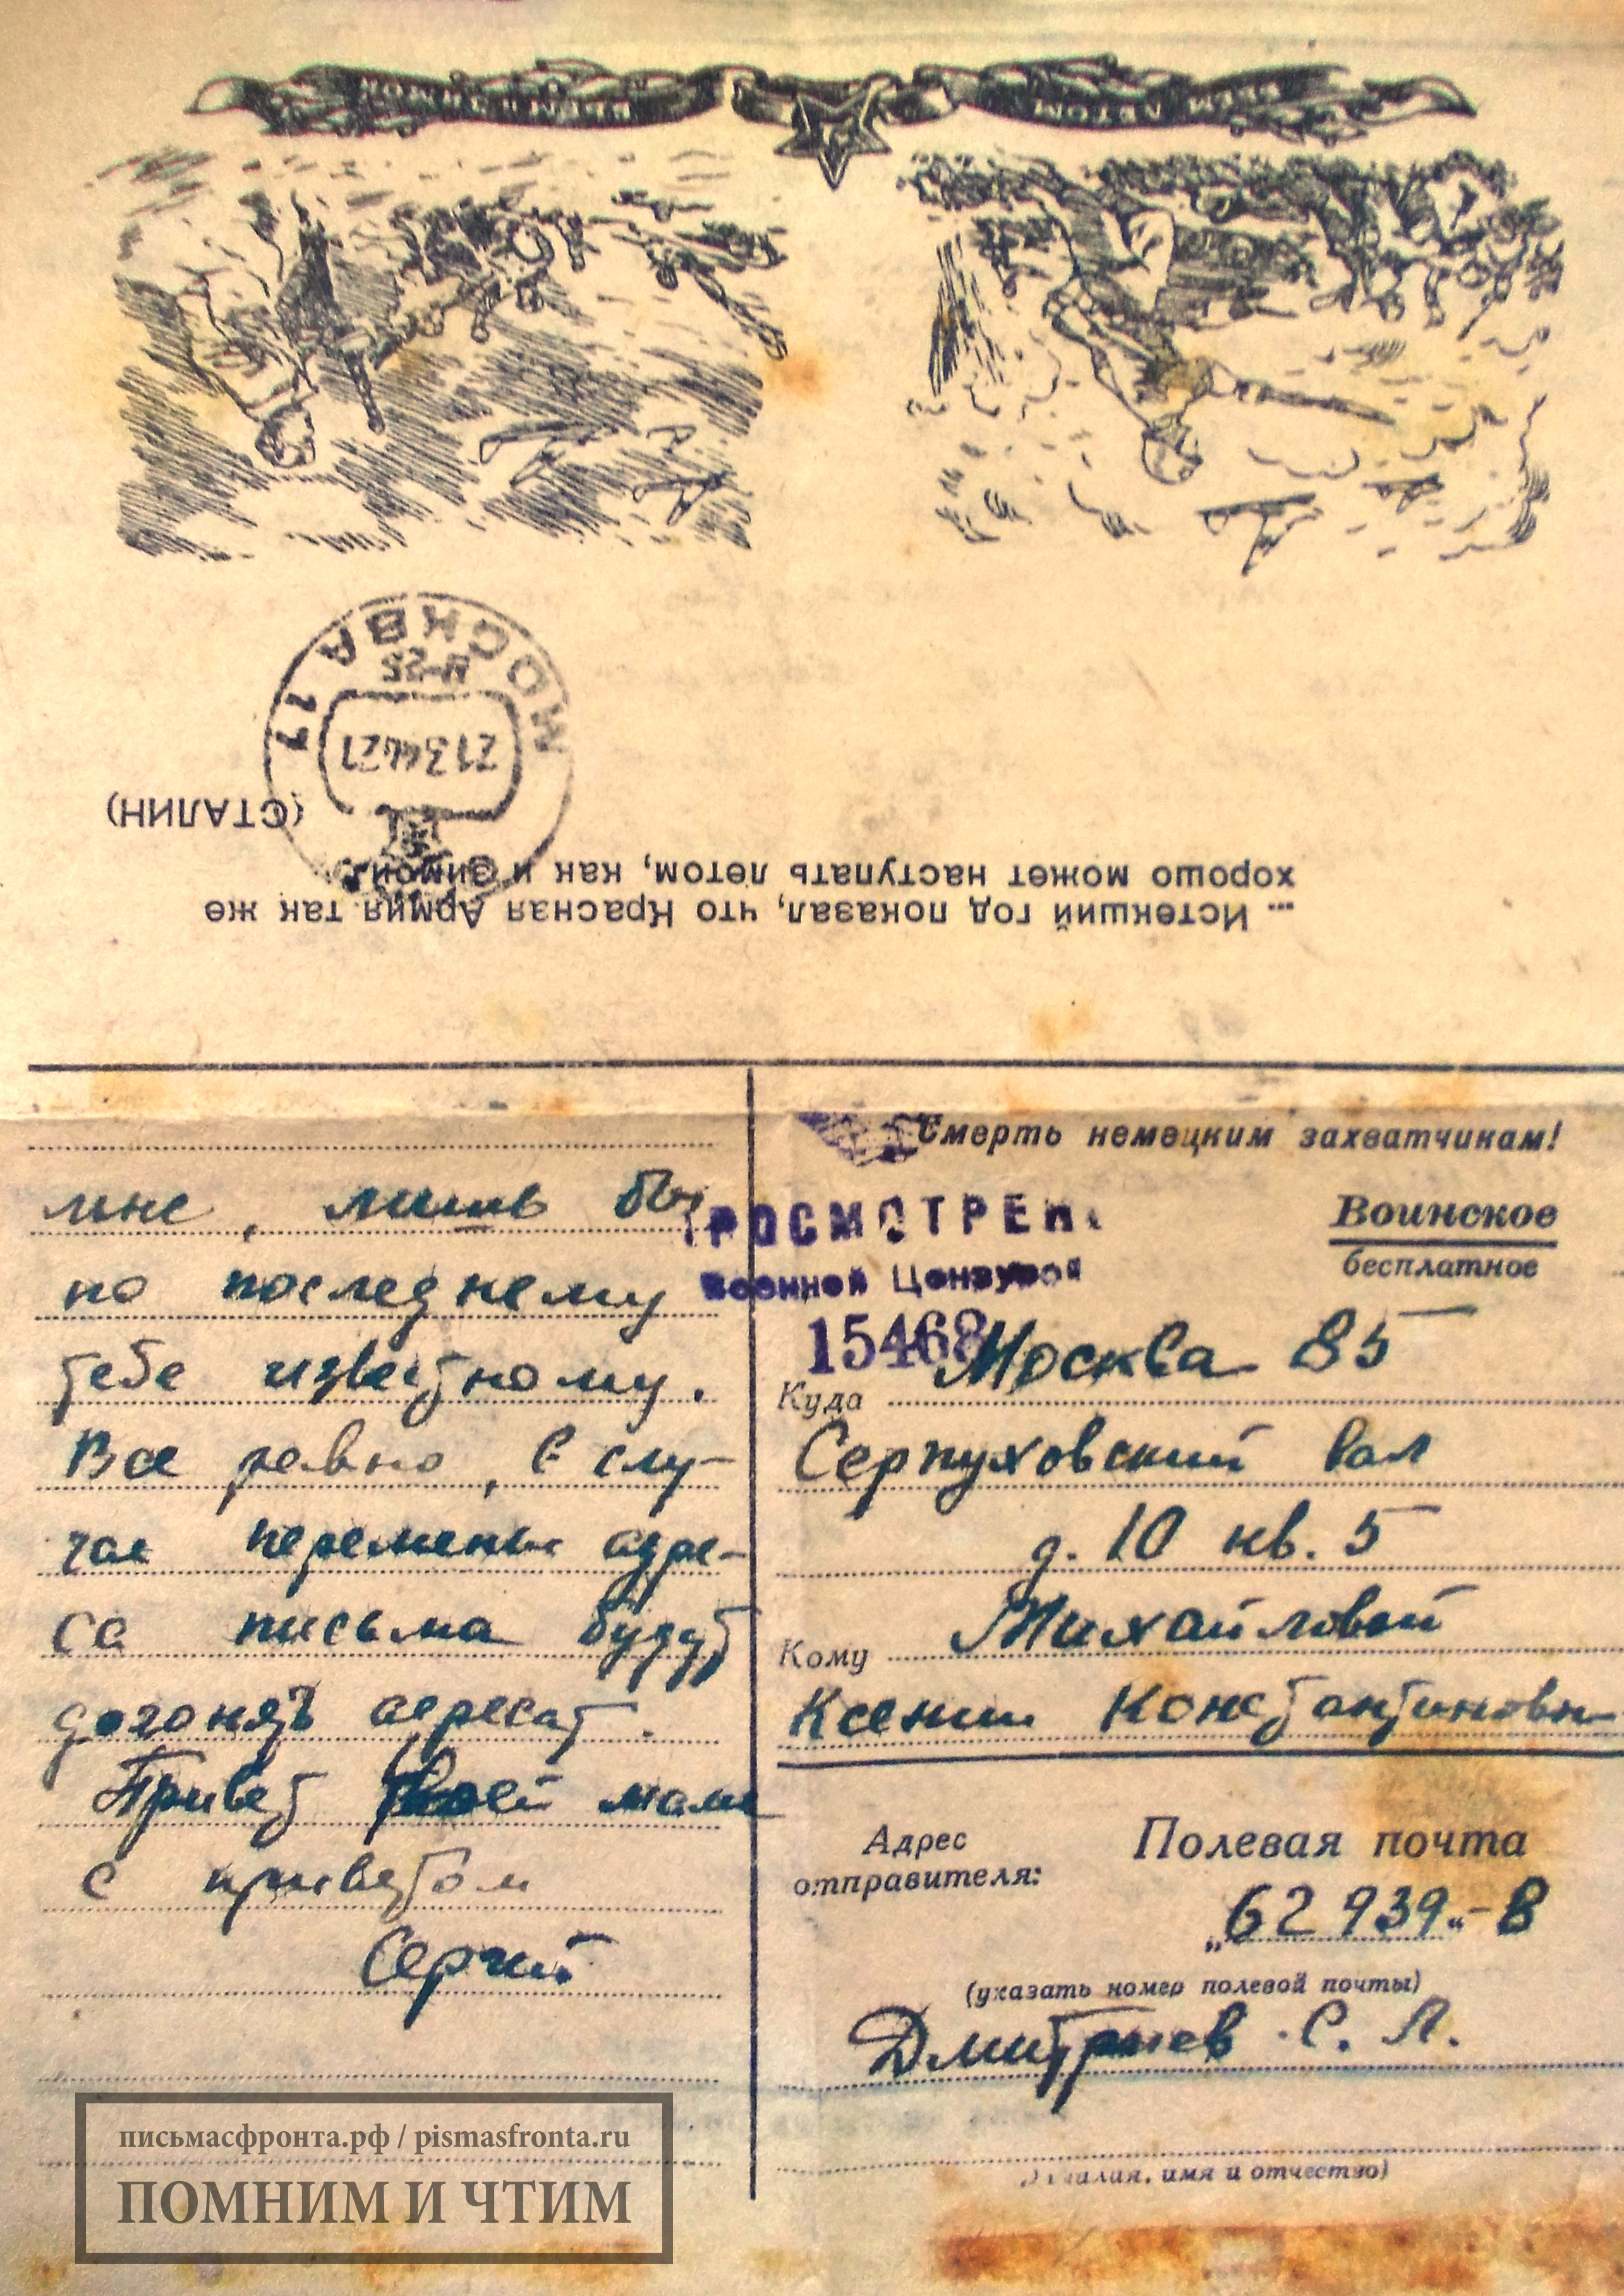 МОСКВА 17
П-25
2134421
... Истекший год показал, что Красная Армия так же
хорошо может наступать летом, как и зимой.
(СТАЛИН)
мне, лишь бы
по последнему
тебе известному.
Все равно, в слу-
чае перемены адре-
са письма будут
догонять адресат.
Привет твоей маме
с приветом
Сергей
Смерть немецким захватчикам!
ПРОСМОТРЕНО
Военной Цензурой
15468
Воинское
бесплатное
Куда Москва 85
Серпуховский вал
д. 10 кв. 5
Кому Михайловой
Ксении Константиновн
Адрес
отправителя:
Полевая почта
„62939“-В
(указать номер полевой почты)
Дмитриев С. Л.
имя и отчество)
письмасфронта.рф / pismasfronta.ru
ПОМНИМ И ЧТИМ